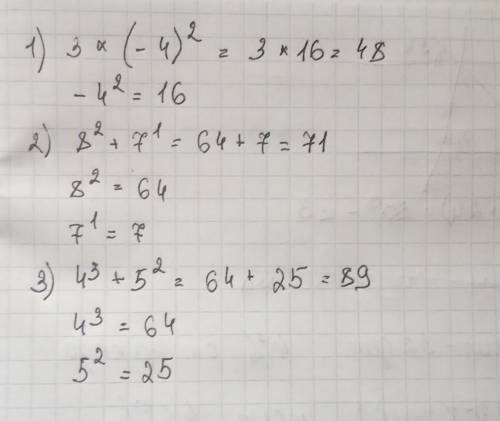 1) 3 × (-4)² = 3 × 16 = 48
-4² = 16
2) 8² + 7¹ = 64 + 7 = 71
8² = 64
7¹ = 7
3) 4³ + 5² = 64 + 25 = 89
4³ = 64
5² = 25